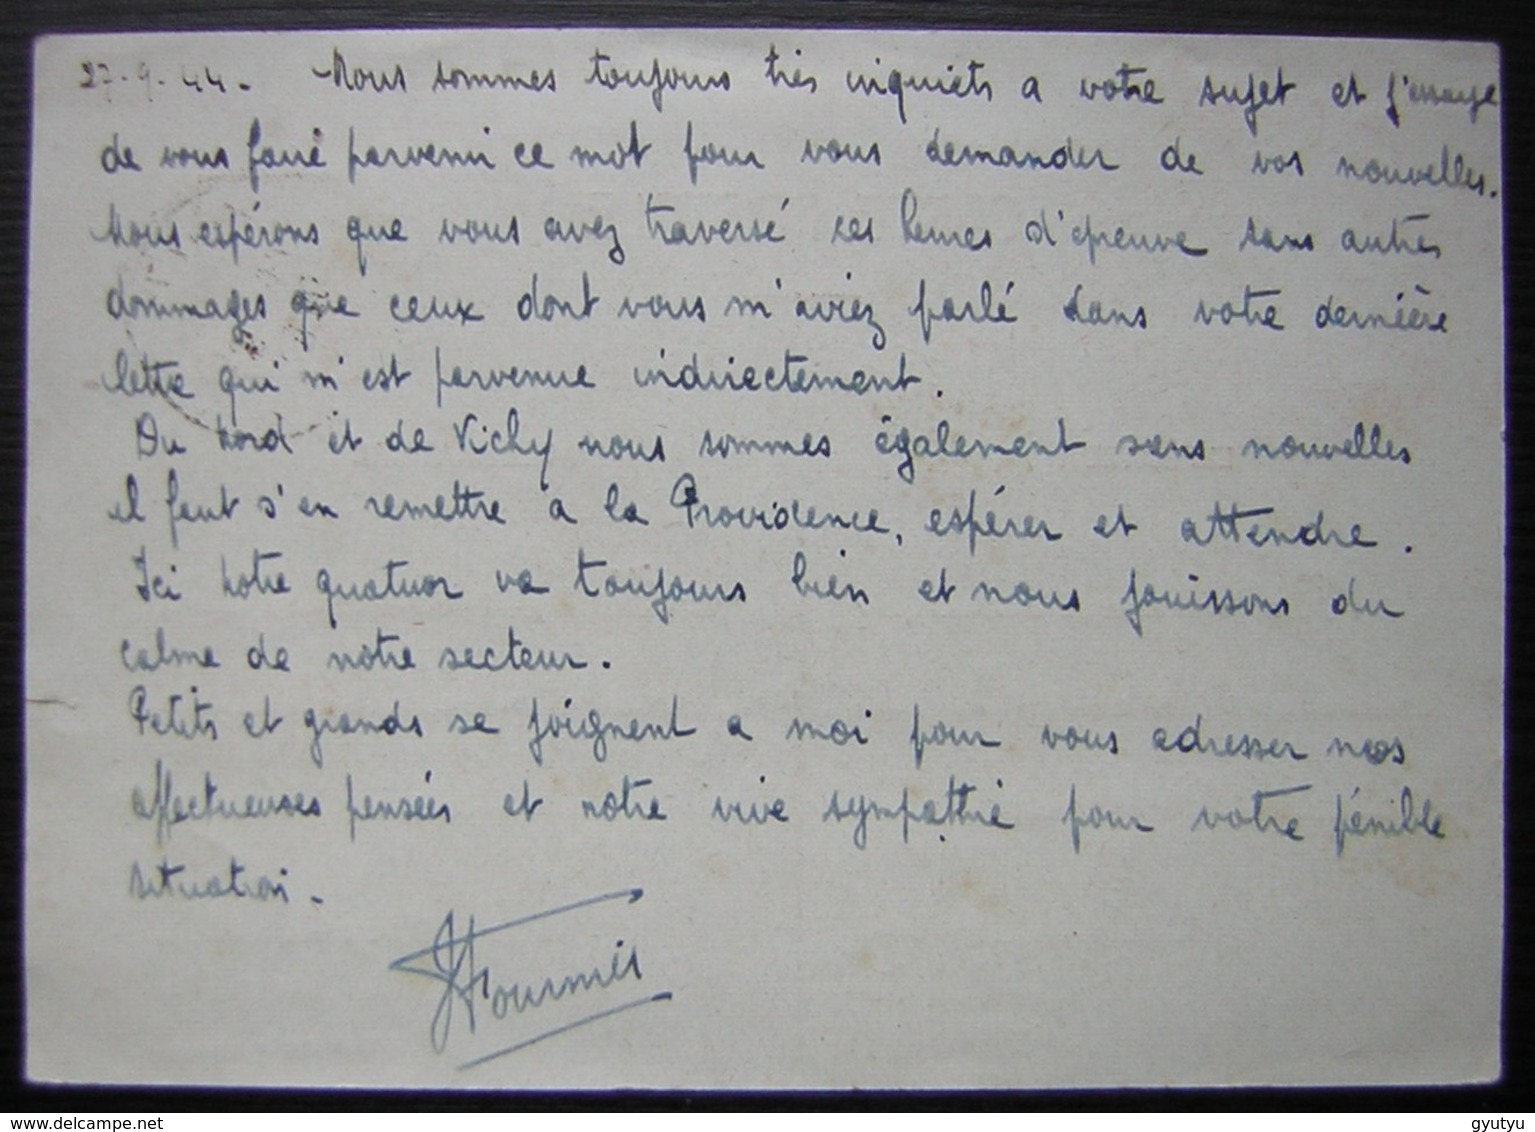 27-9-44. Nous sommes toujours très inquiets a votre sujet et j'essaye
de vous faire parvenir ce mot pour vous demander de vos nouvelles.
Nous espérons que vous avez traversé ces heures d'épreuve sans autres
dommages que ceux dont vous m'aviez parlé dans votre dernière
lettre qui m'est parvenue indirectement.
Du Nord et de Vichy nous sommes également sans nouvelles
il faut s'en remettre à la Providence, espérer et attendre.
Ici notre quatuor va toujours bien et nous jouissons du
calme de notre secteur.
Petits et grands se joignent a moi pour vous adresser nos
affectueuses pensées et notre vive sympathie pour votre pénible
situation.
Fournier
www.delcampe.net
gyutyu